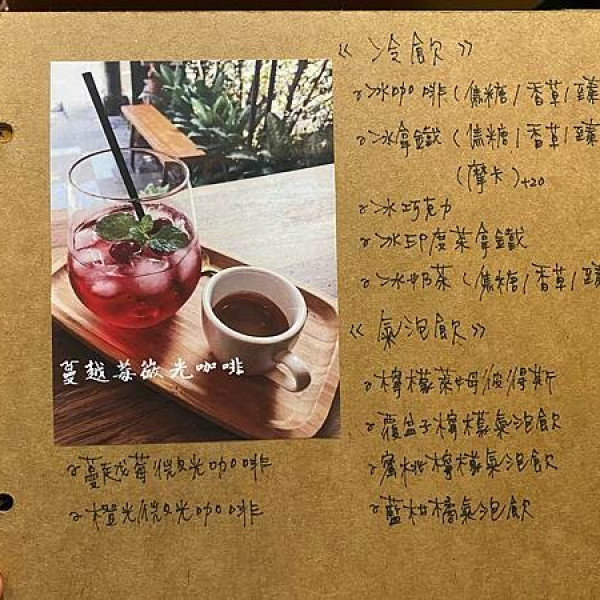 蔓越莓微光咖啡
ღ蔓越莓微光咖啡
ღ橙光微光咖啡
《 冷飲 》
ღ冰咖啡(焦糖/香草/榛
ღ冰拿鐵(焦糖/香草/榛
(摩卡)+20
ღ冰巧克力
ღ冰印度茶拿鐵
ღ冰奶茶(焦糖/香草/榛
《 氣泡飲 》
ღ檸檬萊姆/彼得斯
ღ覆盆子檸檬氣泡飲
ღ蜜桃檸檬氣泡飲
ღ藍柑橘氣泡飲